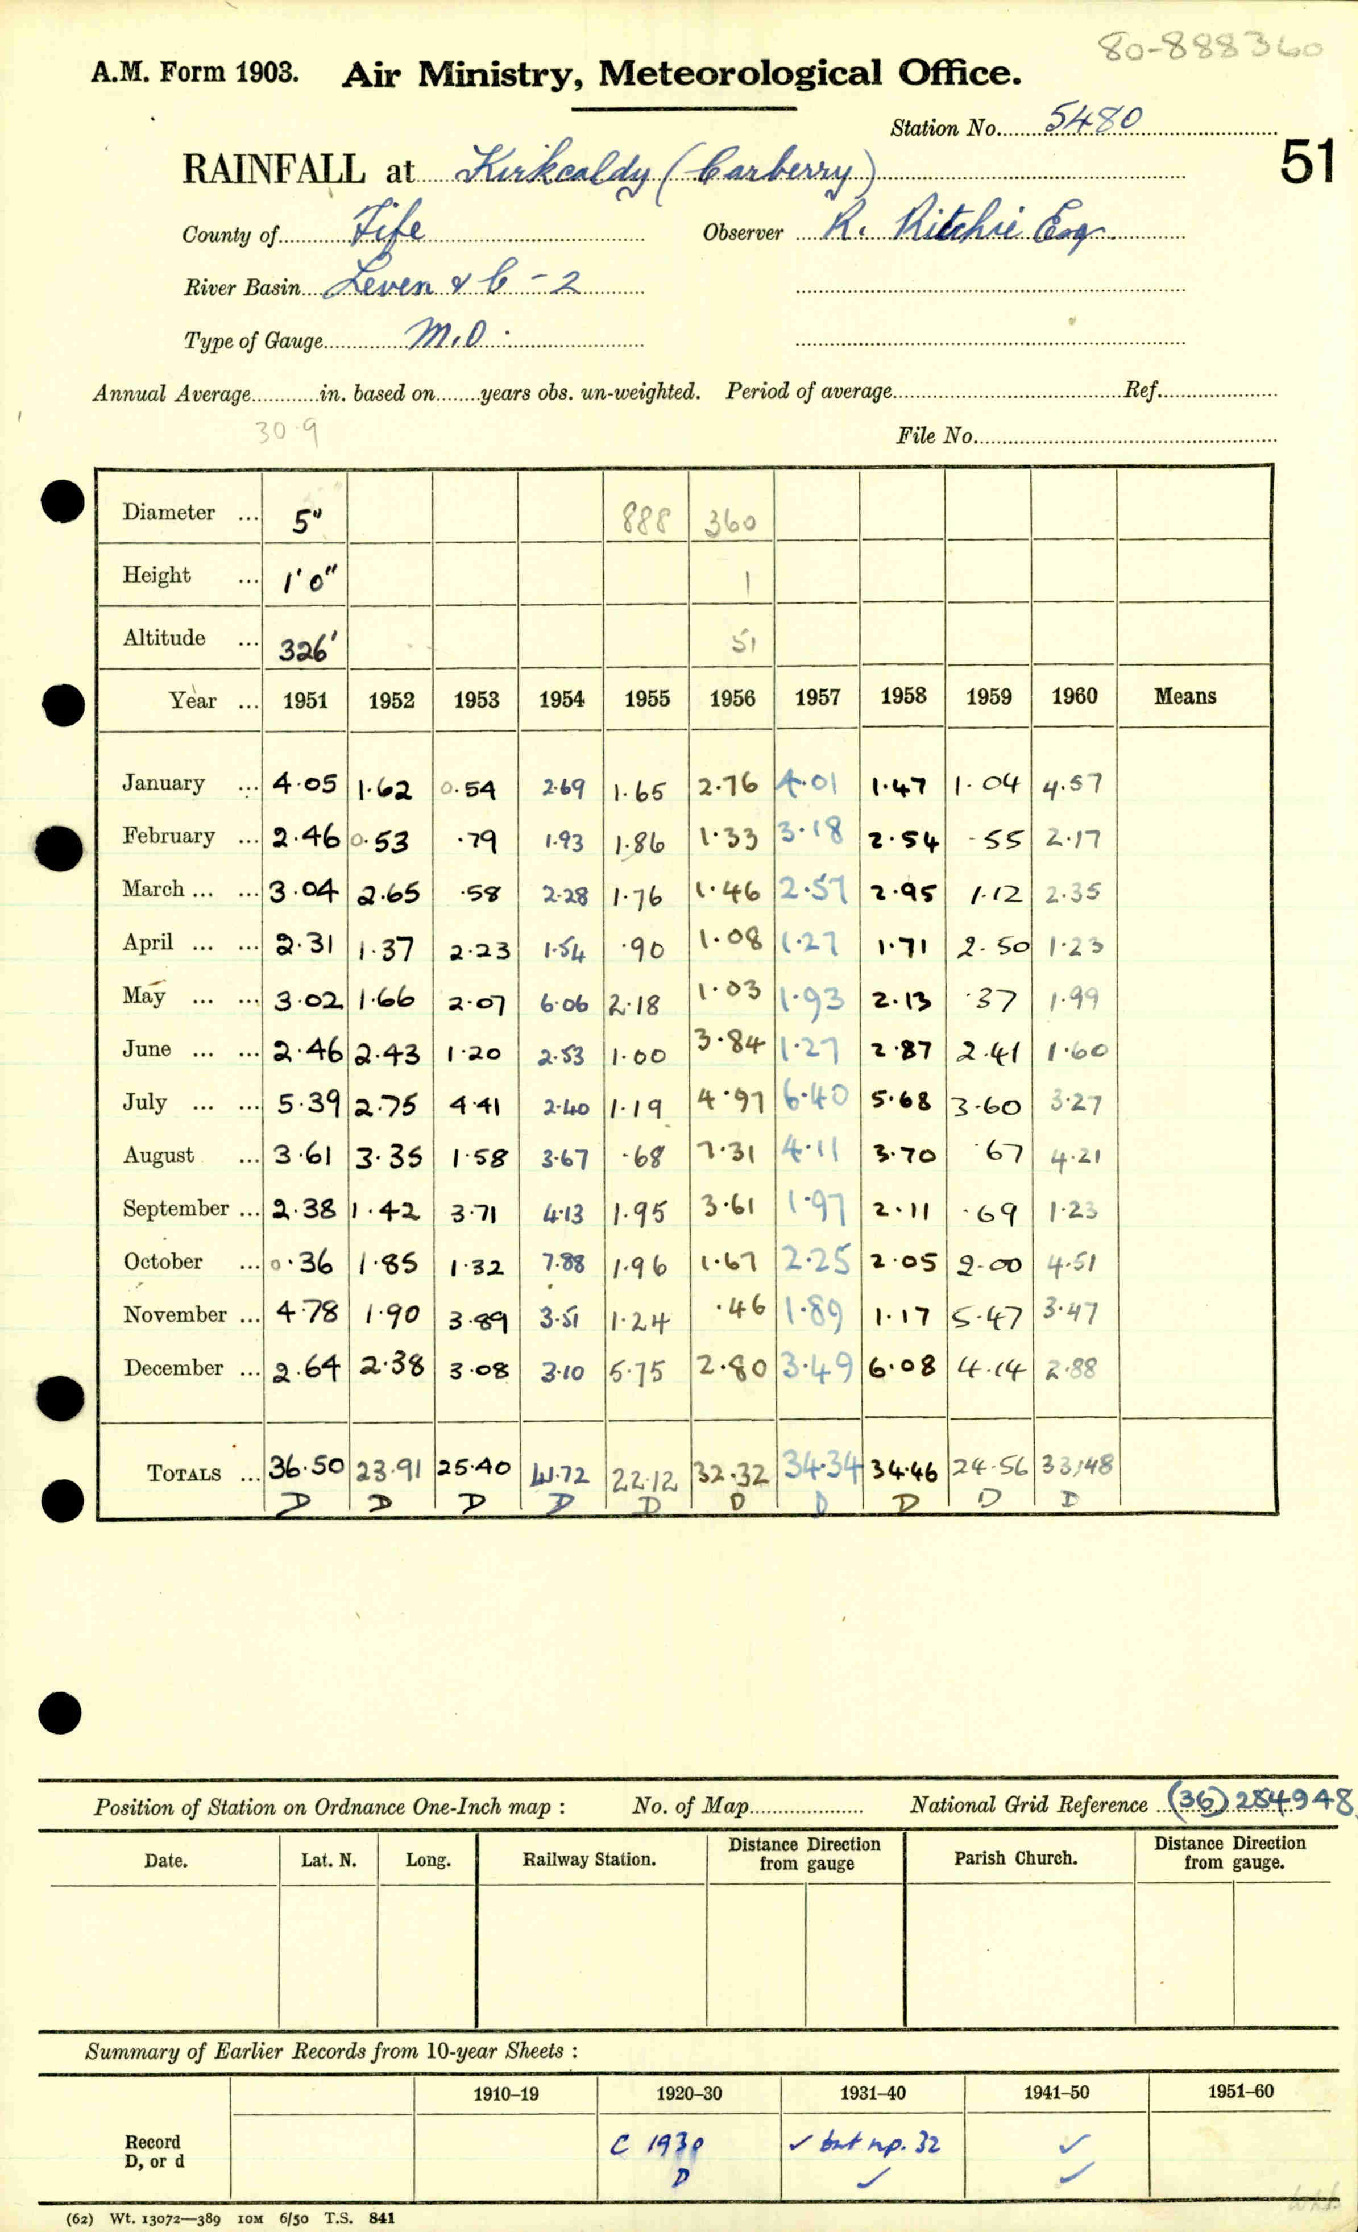 80-888360
A.M. Form 1903. Air Ministry, Meteorological Office.
Station No. 5480
51
RAINFALL at Kirkcaldy (Carberry)
County of Fife Observer R. Ritchie Esq.
River Basin Leven & C - 2
Type of Gauge M.O.
Annual Average in. based on years obs. un-weighted. Period of average Ref.
30.9
File No.
Diameter ... 5" 888 360
Height ... 1' 0" 1
Altitude ... 326' 51
Year ... 1951 1952 1953 1954 1955 1956 1957 1958 1959 1960 Means
January ... 4.05 1.62 0.54 2.69 1.65 2.76 4.01 1.47 1.04 4.57
February ... 2.46 0.53 .79 1.93 1.86 1.33 3.18 2.54 .55 2.17
March ... ... 3.04 2.65 .58 2.28 1.76 1.46 2.57 2.95 1.12 2.35
April ... ... 2.31 1.37 2.23 1.54 .90 1.08 1.27 1.71 2.50 1.23
May ... ... 3.02 1.66 2.07 6.06 2.18 1.03 1.93 2.13 .37 1.99
June ... ... 2.46 2.43 1.20 2.53 1.00 3.84 1.27 2.87 2.41 1.60
July ... ... 5.39 2.75 4.41 2.40 1.19 4.97 6.40 5.68 3.60 3.27
August ... 3.61 3.35 1.58 3.67 .68 7.31 4.11 3.70 .67 4.21
September ... 2.38 1.42 3.71 4.13 1.95 3.61 1.97 2.11 .69 1.23
October ... 0.36 1.85 1.32 7.88 1.96 1.67 2.25 2.05 2.00 4.51
November ... 4.78 1.90 3.89 3.51 1.24 .46 1.89 1.17 5.47 3.47
December ... 2.64 2.38 3.08 3.10 5.75 2.80 3.49 6.08 4.14 2.88
TOTALS ... 36.50 23.91 25.40 41.72 22.12 32.32 34.34 34.46 24.56 33.48
D D D D D D D D D D
Position of Station on Ordnance One-Inch map : No. of Map National Grid Reference (36) 284948
Date. Lat. N. Long. Railway Station. Distance Direction from gauge Parish Church. Distance Direction from gauge.
Summary of Earlier Records from 10-year Sheets :
1910–19 1920–30 1931–40 1941–50 1951–60
Record C 1930 ✓ but np. 32 ✓
D, or d D ✓ ✓
(62) Wt. 13072—389 10M 6/50 T.S. 841